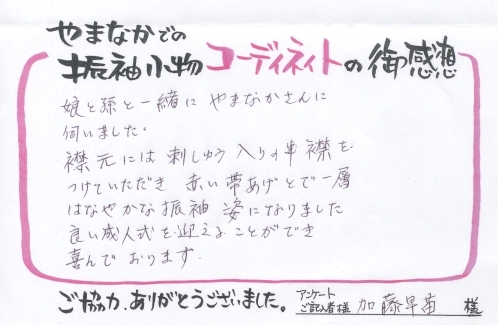 やまなかでの
振袖小物コーディネイトの御感想
娘と孫と一緒に やまなかさんに
伺いました。
襟元には 刺しゅう入りの半襟を
つけていただき 赤い帯あげとで一層
はなやかな振袖 姿になりました
良い成人式を迎えることができ
喜んでおります。
ご協力、ありがとうございました。
アンケート
ご記入者様 加藤早苗 様